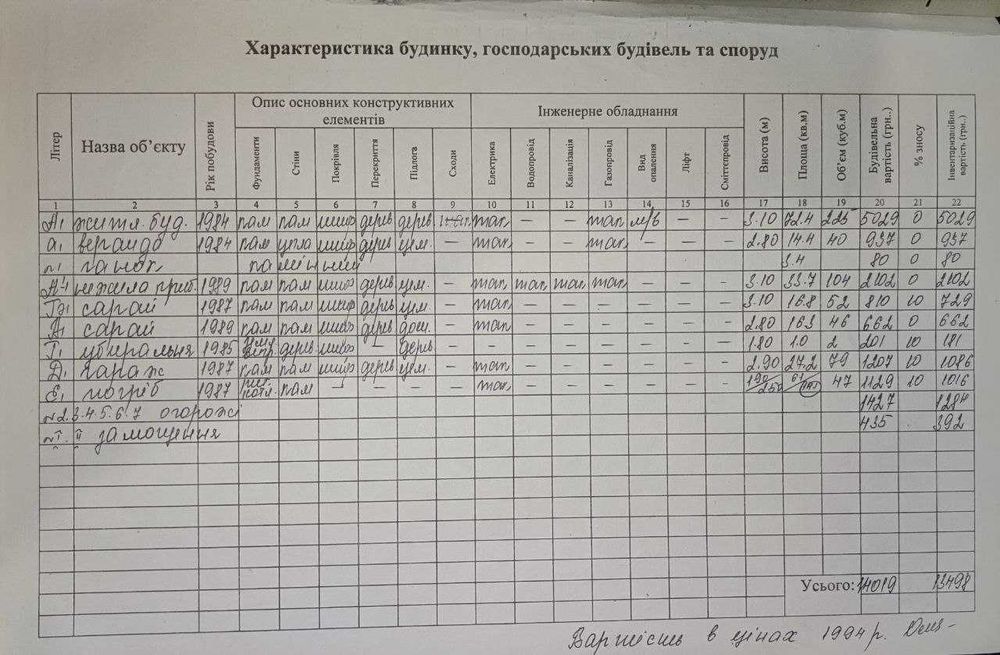 Характеристика будинку, господарських будівель та споруд
Літер Назва об’єкту Рік побудови Опис основних конструктивних елементів Інженерне обладнання Висота (м) Площа (кв.м) Об’єм (куб.м) Будівельна вартість (грн..) % зносу Інвентаризаційна вартість (грн..)
Фундаменти Стіни Покрівля Перекриття Підлога Сходи Електрика Водопровід Каналізація Газопровід Вид опалення Ліфт Сміттєпровід
1 2 3 4 5 6 7 8 9 10 11 12 13 14 15 16 17 18 19 20 21 22
А₁ житл. буд. 1984 кам кам шиф дерев дерев. так. — — так м/в — — 3.10 72.4 225 5029 0 5029
а₁ веранда 1984 кам цегла шиф дерев цем. — так. — — так. — — — 2.80 14.4 40 937 0 937
ганок камінний 3.4 80 0 80
нежила приб. 1989 кам кам шиф дерев цем. — так так так так — — — 3.10 33.7 104 2102 0 2102
сарай 1987 кам кам шиф дерев цем — так — — — — — — 3.10 16.8 52 810 10 729
сарай 1989 кам кам шиф дерев дощ. — так — — — — — — 2.80 16.3 46 662 0 662
убиральня 1985 дерев шиф — дерев — — — — — — — — 1.80 1.0 2 201 10 181
Д₁ гараж 1987 кам кам шиф дерев цем. — так — — — — — — 2.90 27.2 79 1207 10 1086
погріб 1987 кам — — — — так. — — — — — — 1.90/2.50 47 1129 10 1016
№2.3.4.5.6.7 огорожі 1427 1284
І. ІІ замощення 435 392
Усього: 14019 13498
Вартість в цінах 1994 р.